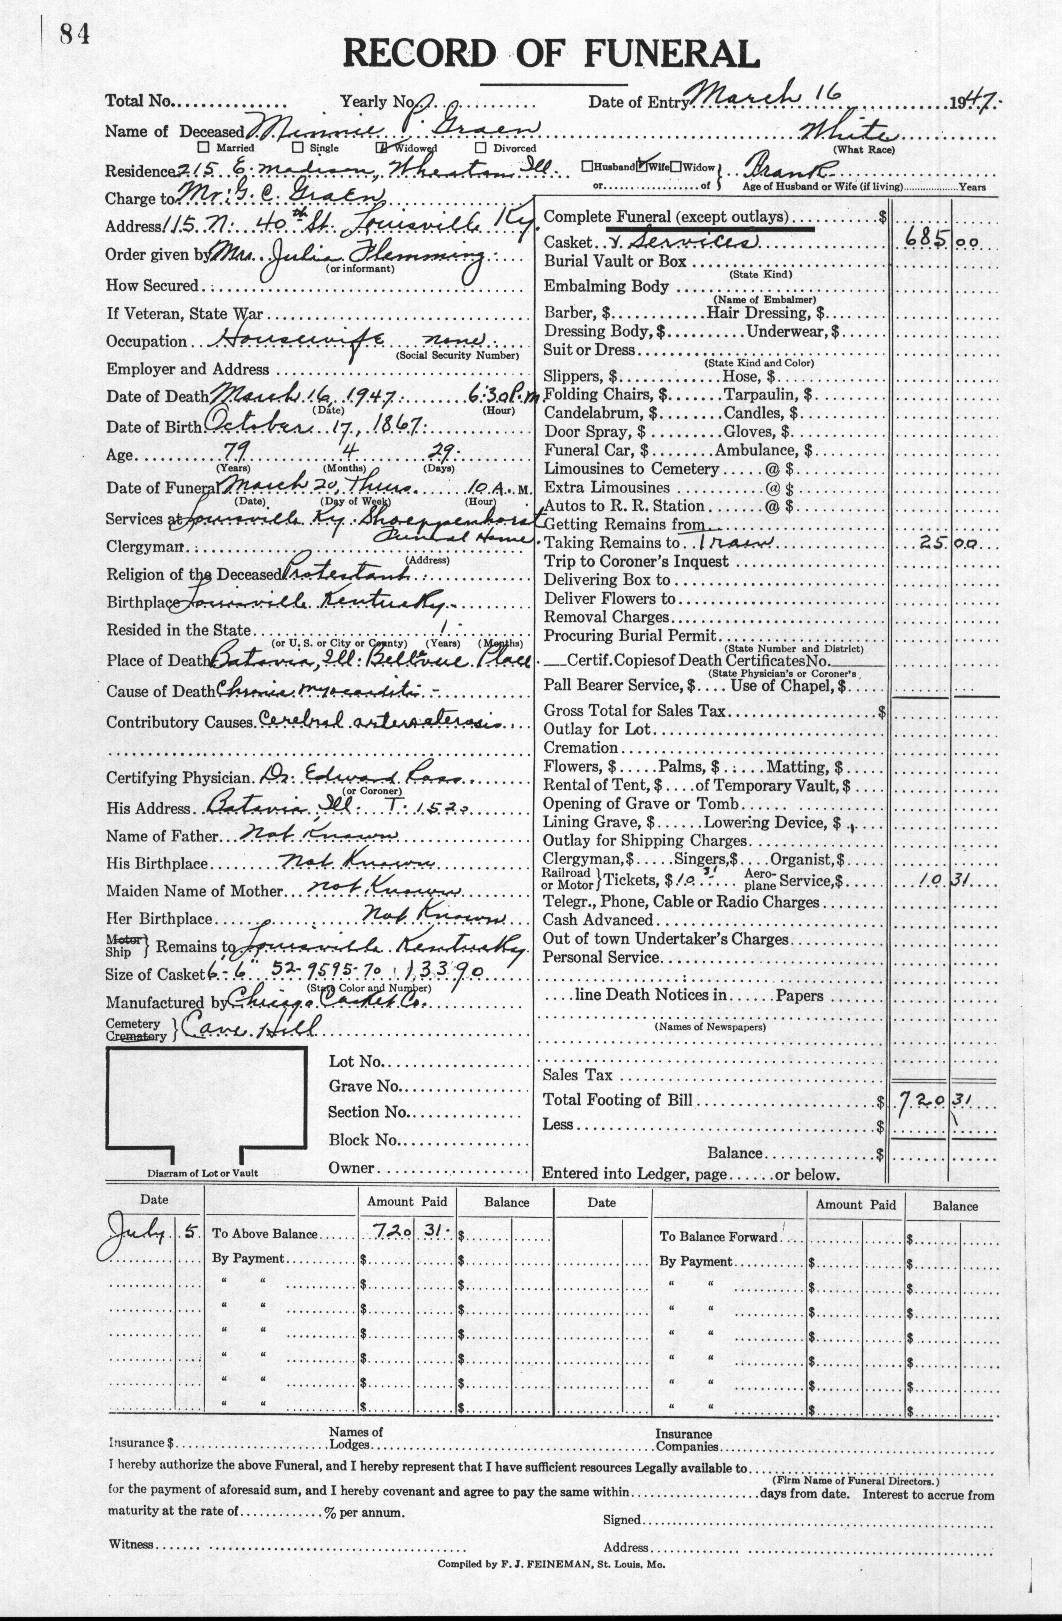 84
RECORD OF FUNERAL
Total No. Yearly No. Date of Entry March 16 1947.
Name of Deceased Minnie P. Graen White
Married Single Widowed Divorced (What Race)
Residence 215 E. Madison, Wheaton Ill. Husband Wife Widow
or of } Frank Age of Husband or Wife (if living) Years
Charge to Mr. G. C. Graen
Address 115 N. 40th St. Louisville Ky.
Order given by Mrs. Julia Flemming
(or informant)
How Secured
If Veteran, State War
Occupation Housewife none
(Social Security Number)
Employer and Address
Date of Death March 16, 1947. 6:30 P.m
(Date) (Hour)
Date of Birth October 17, 1867.
Age 79 4 29.
(Years) (Months) (Days)
Date of Funeral March 20, Thurs. 10 A. M.
(Date) (Day of Week) (Hour)
Services at Louisville Ky. Shoeppenhorst
Funeral Home.
Clergyman
(Address)
Religion of the Deceased Protestant
Birthplace Louisville Kentucky
Resided in the State 1
(or U. S. or City or County) (Years) (Months)
Place of Death Batavia, Ill. Bellevue Place
Cause of Death Chronic myocarditis -
Contributory Causes Cerebral arterosclerosis
Certifying Physician Dr. Edward Ross
(or Coroner)
His Address Batavia, Ill. T. 1520
Name of Father Not Known
His Birthplace Not Known
Maiden Name of Mother Not Known
Her Birthplace Not Known
Motor
Ship } Remains to Louisville Kentucky
Size of Casket 6-6" 52-9595-70 13390
(State Color and Number)
Manufactured by Chicago Casket Co.
Cemetery
Crematory } Cave Hill
Lot No.
Grave No.
Section No.
Block No.
Owner
Diagram of Lot or Vault
Complete Funeral (except outlays) $
Casket & Services 685 00
Burial Vault or Box
(State Kind)
Embalming Body
(Name of Embalmer)
Barber, $ Hair Dressing, $
Dressing Body, $ Underwear, $
Suit or Dress
(State Kind and Color)
Slippers, $ Hose, $
Folding Chairs, $ Tarpaulin, $
Candelabrum, $ Candles, $
Door Spray, $ Gloves, $
Funeral Car, $ Ambulance, $
Limousines to Cemetery @ $
Extra Limousines @ $
Autos to R. R. Station @ $
Getting Remains from
Taking Remains to Train 25 00
Trip to Coroner's Inquest
Delivering Box to
Deliver Flowers to
Removal Charges
Procuring Burial Permit
(State Number and District)
Certif. Copies of Death Certificates No.
(State Physician's or Coroner's
Pall Bearer Service, $ Use of Chapel, $
Gross Total for Sales Tax $
Outlay for Lot
Cremation
Flowers, $ Palms, $ Matting, $
Rental of Tent, $ of Temporary Vault, $
Opening of Grave or Tomb
Lining Grave, $ Lowering Device, $
Outlay for Shipping Charges
Clergyman, $ Singers, $ Organist, $
Railroad
or Motor } Tickets, $ 10.31 Aero-
plane Service, $ 10 31
Telegr., Phone, Cable or Radio Charges
Cash Advanced
Out of town Undertaker's Charges
Personal Service
line Death Notices in Papers
(Names of Newspapers)
Sales Tax
Total Footing of Bill $ 720 31
Less $
Balance $
Entered into Ledger, page or below.
Date Amount Paid Balance Date Amount Paid Balance
July 5 To Above Balance 720 31. $ To Balance Forward $
By Payment $ $ By Payment $ $
" " $ $ " " $ $
" " $ $ " " $ $
" " $ $ " " $ $
" " $ $ " " $ $
" " $ $ " " $ $
" " $ $ " " $ $
Insurance $ Names of
Lodges Insurance
Companies
I hereby authorize the above Funeral, and I hereby represent that I have sufficient resources Legally available to
(Firm Name of Funeral Directors.)
for the payment of aforesaid sum, and I hereby covenant and agree to pay the same within days from date. Interest to accrue from
maturity at the rate of % per annum.
Signed
Witness Address
Compiled by F. J. FEINEMAN, St. Louis, Mo.